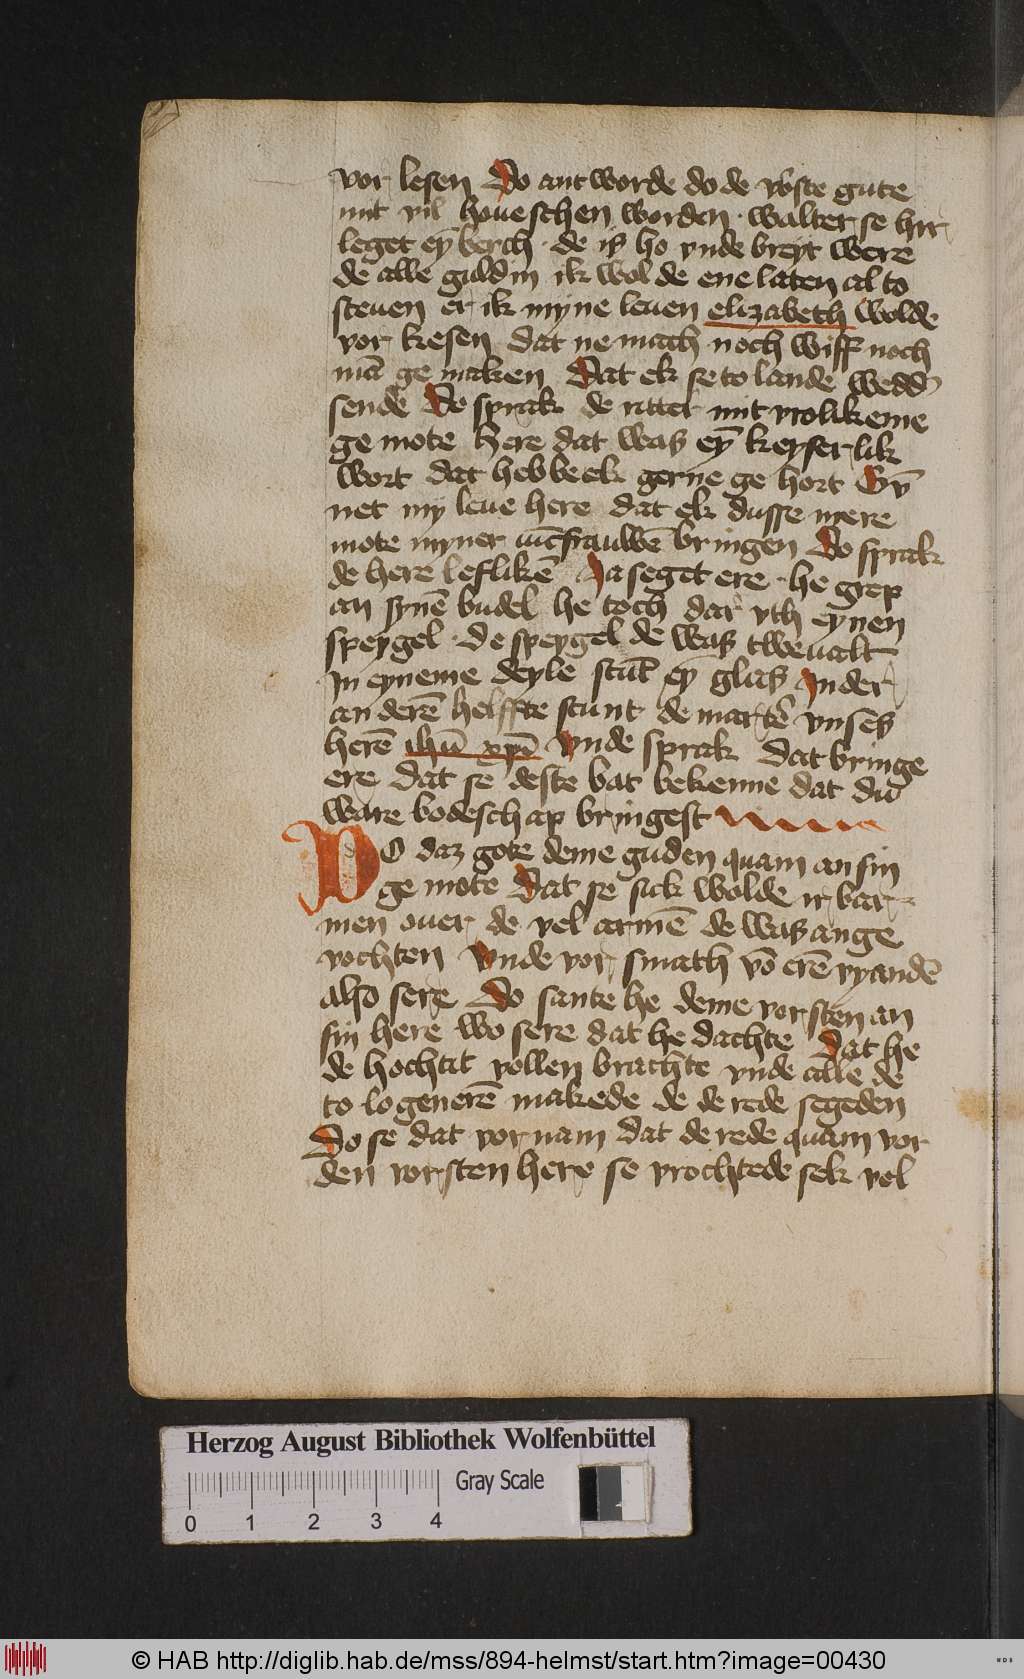 vor lesen Do antworde do de vorste gute
mit vil houeschen worden · walter se hir
leget eȳ berch · de is ho vnde breyt were
de alle guldin ik wolde ene laten al to
steuen er ik myne leuen elizabeth wolde
vor kesen dat ne mach noch wiff noch
mā ge maken Dat ek se to lande wedd͛
sende Do sprak de ritter mit vrolikeme
ge mote here dat was eȳ keyser lik
wort dat hebbe ek gerne ge hort Gȳ
net my leue here dat ek dusse mere
mote myner iūcfrauwē bringen Do sprak
de here leflikē Ja seget ere · he grep
an synē budel he toch dar vth eynen
speygel · De speygel de was tweualt
In eyneme deyle stūt eȳ glas In der
an derē helffte stunt de martē vnses
herē ihū xp̄i vnde sprak dat bringe
ere dat se deste bat bekenne dat du
ware bodeschap bringest
DO daz gote deme guden quam an sin
ge mote Dat se sick wolde ir bar
men ouer de vel armē de was ange
vochten Vnde vor smath vō erē vyandē
also sere Do sante he deme vorsten an
sin here wo sere dat he dachte dat he
de hochtit vollen brachte vnde alle de
to logenerē makede de de rede segeden
Do se dat vor nam dat de rede quam vor
den vorsten here se vrochtede sek vel
Herzog August Bibliothek Wolfenbüttel
Gray Scale
0 1 2 3 4
© HAB http://diglib.hab.de/mss/894-helmst/start.htm?image=00430